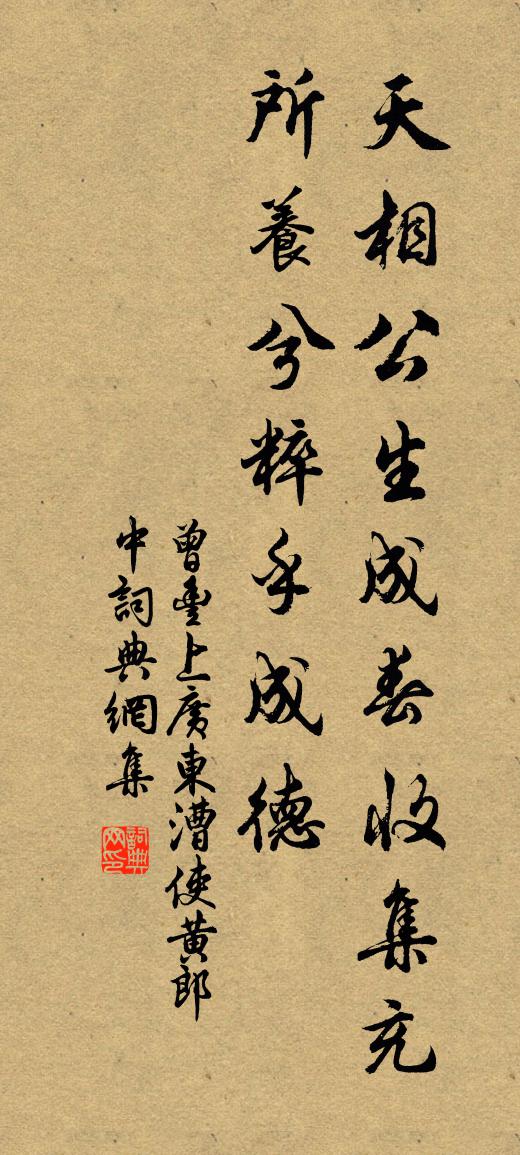 天相公生成春收集充
所養兮粹乎成德
曾豐上廣東漕使黃郎
中詞典網集
詞典網印